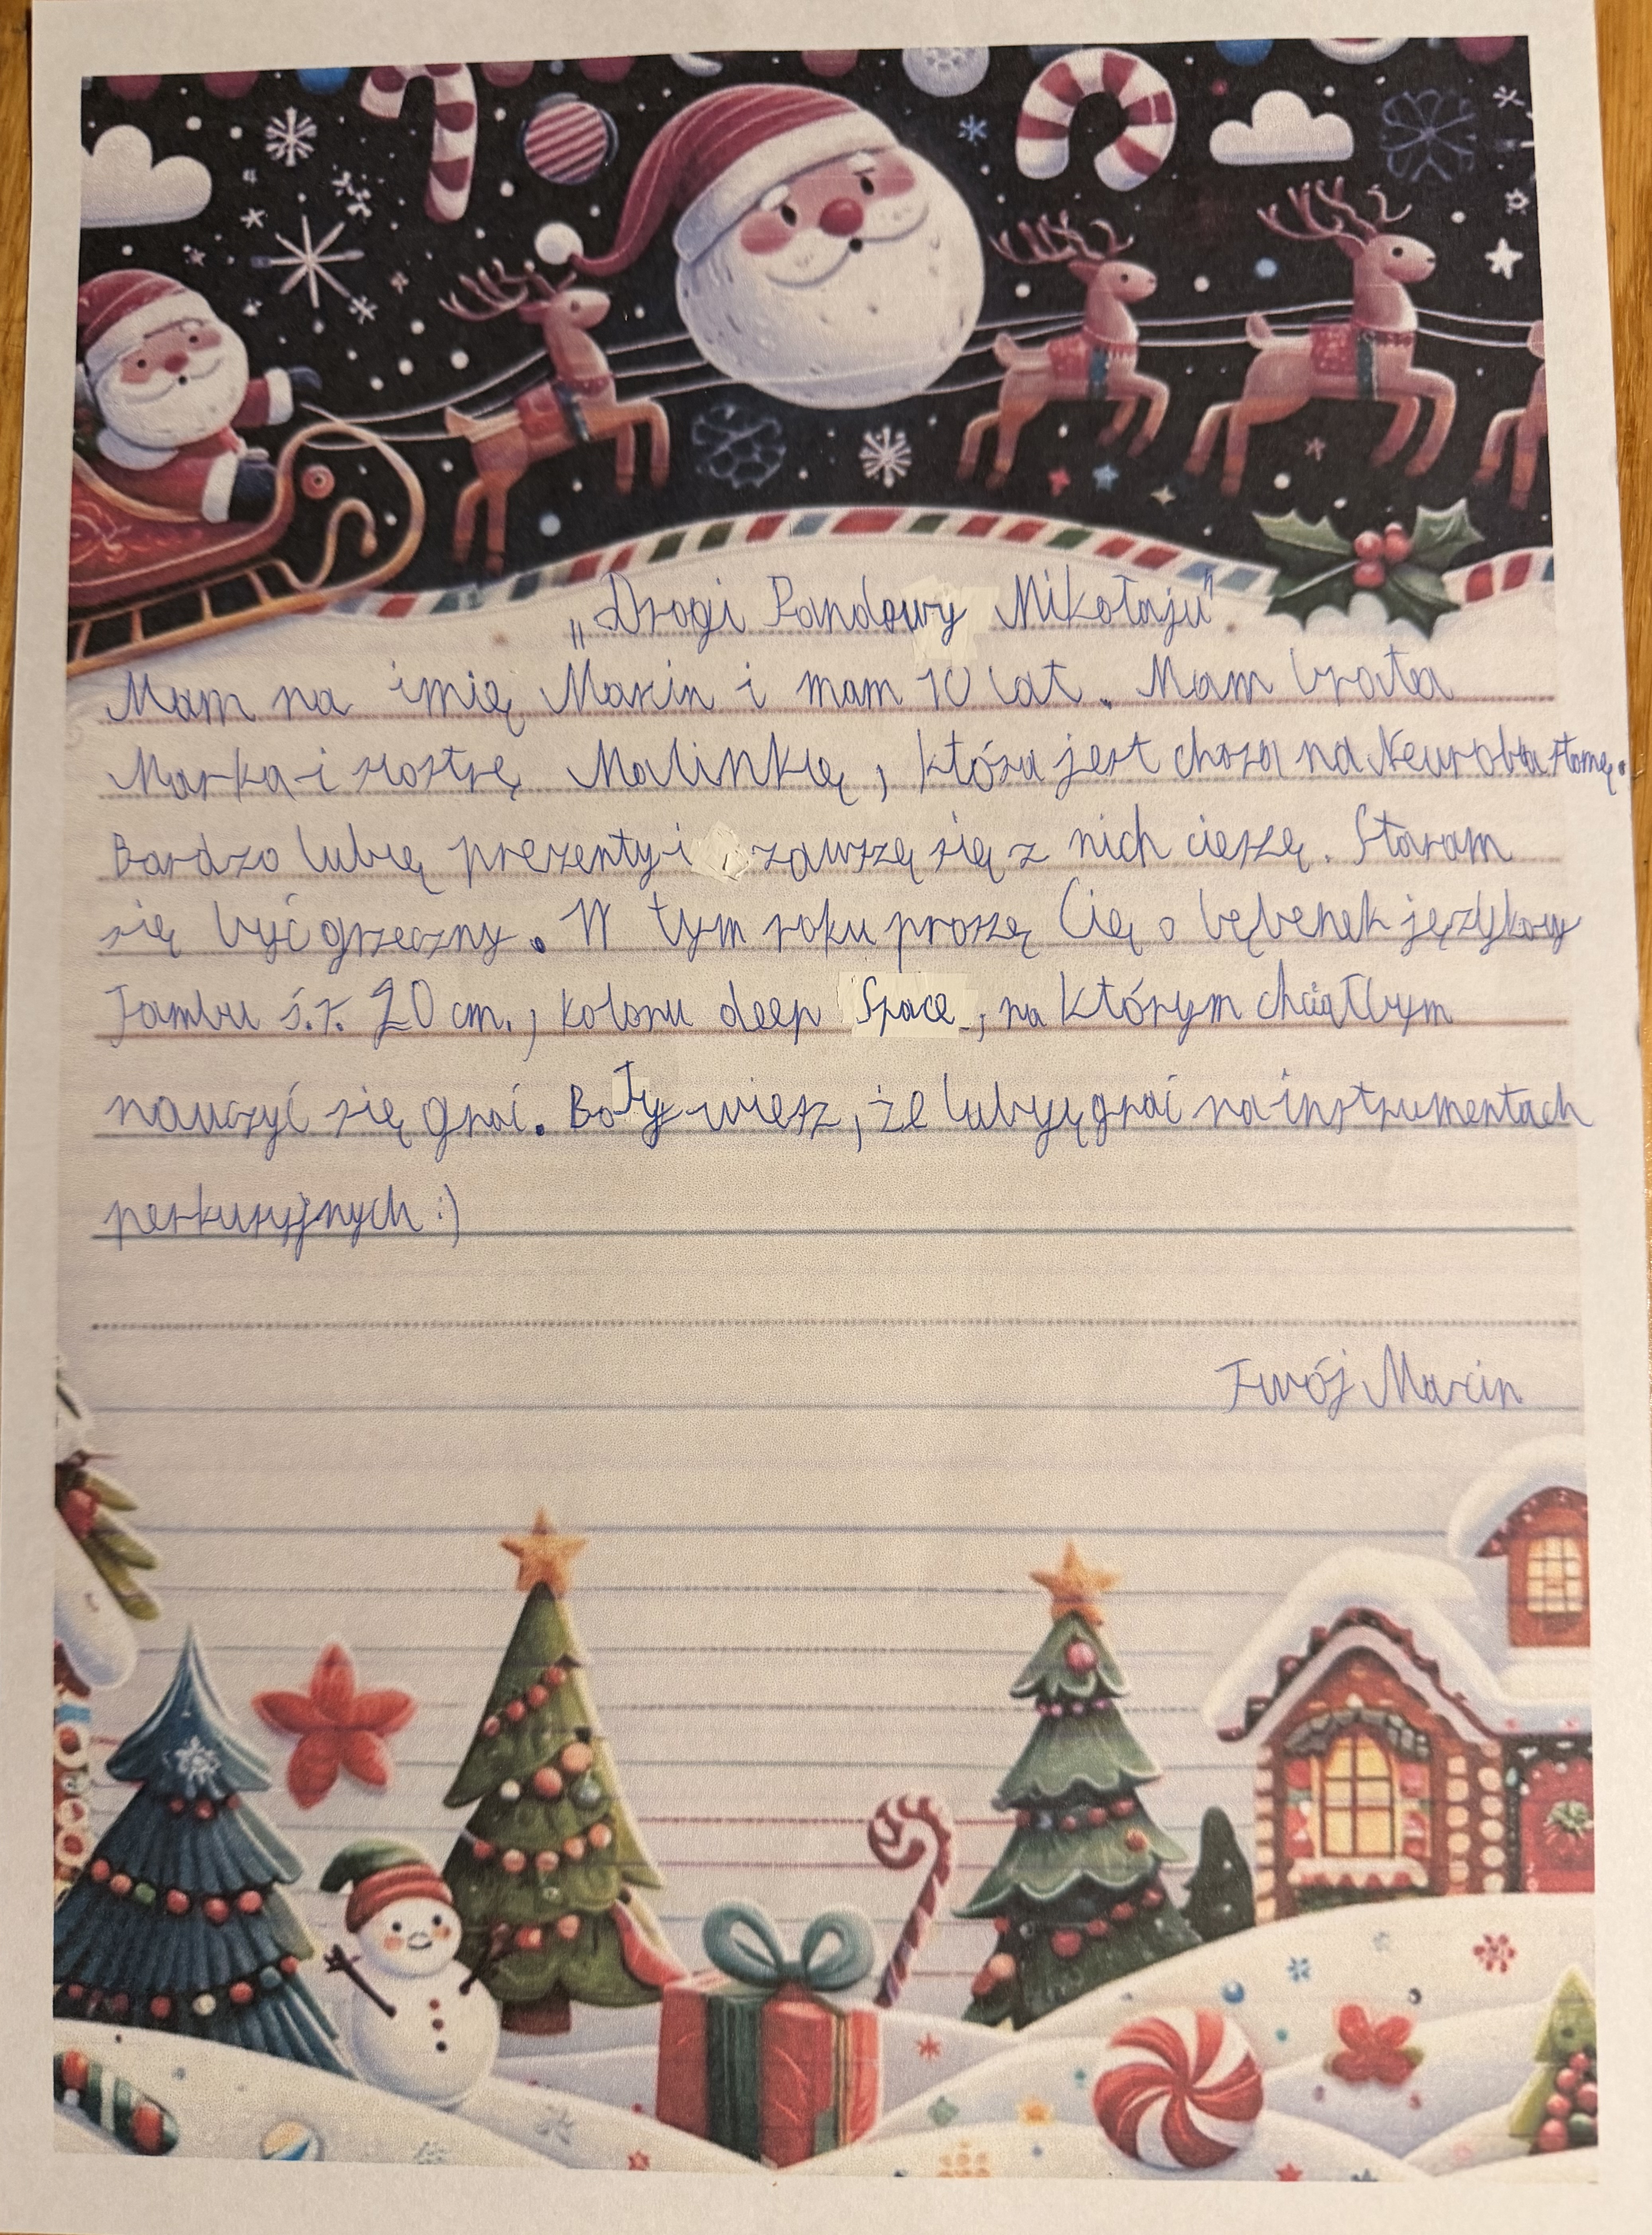 „Drogi Pandowy Mikołaju"
Mam na imię Marcin i mam 10 lat. Mam brata
Marka i siostrę Malinkę, która jest chora na Neuroblastomę.
Bardzo lubię prezenty i zawszę się z nich cieszę. Staram
się być grzeczny. W tym roku proszę Cię o bębenek językowy
Jambu ś.r. 20 cm., koloru deep Space, na którym chciałbym
nauczyć się grać. Bo Ty wiesz, że lubię grać na instrumentach
perkusyjnych :)
Twój Marcin